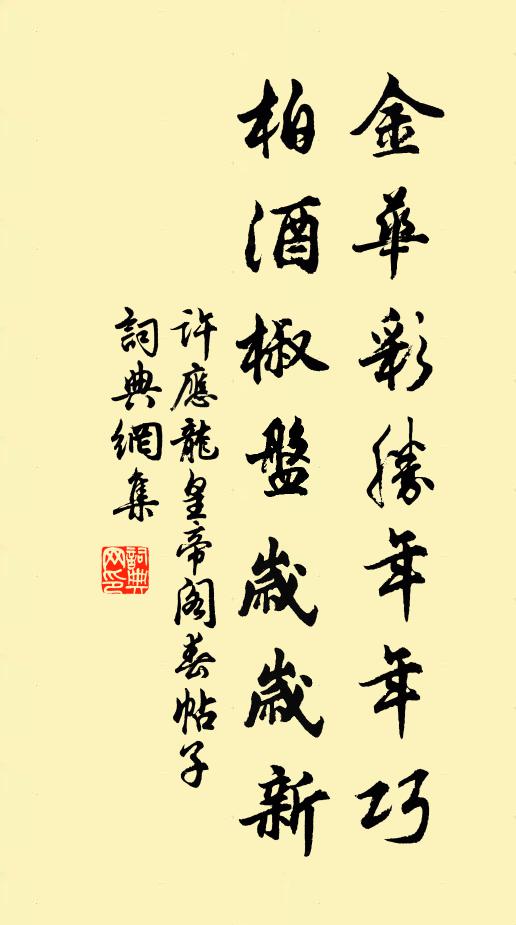 金華彩勝年年巧
柏酒椒盤歲歲新
許應龍皇帝閣春帖子
詞典網集
詞典网印